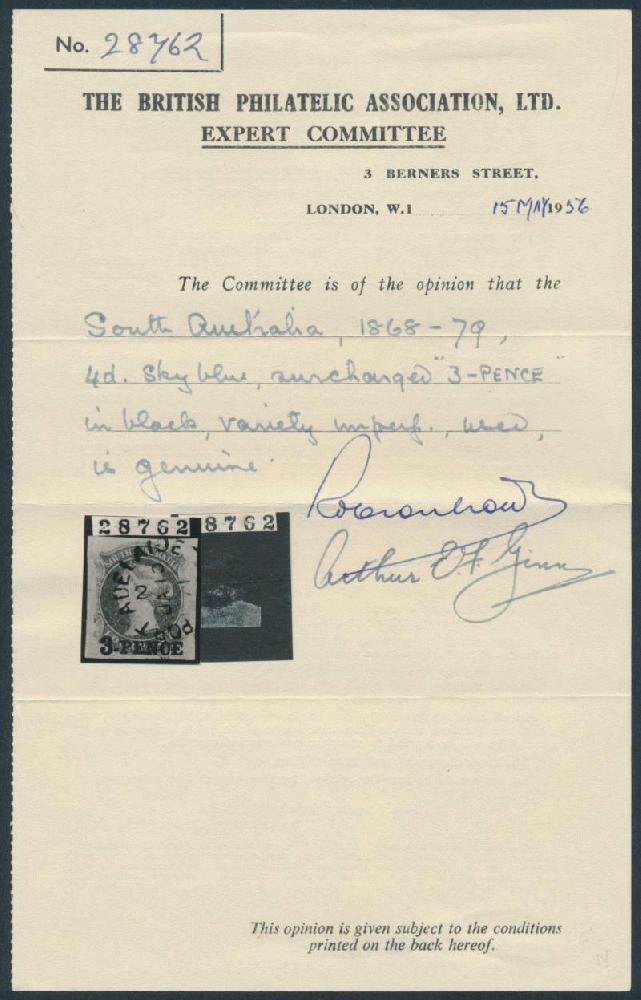 No. 28762
THE BRITISH PHILATELIC ASSOCIATION, LTD.
EXPERT COMMITTEE
3 BERNERS STREET,
LONDON, W.1 15 MAY 1956
The Committee is of the opinion that the
South Australia, 1868-79,
4d. Sky blue, surcharged "3-PENCE"
in black, variety imperf., used,
is genuine.
Arthur E.F. Ginn
28762 8762
PORT ADELAIDE
2
3-PENCE
This opinion is given subject to the conditions
printed on the back hereof.